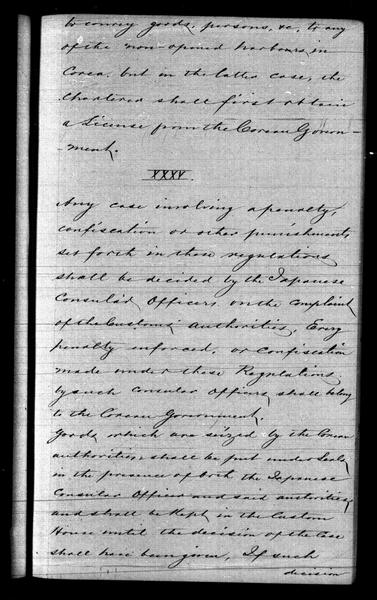 to convey goods, persons, &c, to any
of the non-opened harbours in
Corea, but in the latter case, the
Chartered shall first obtain
a License from the Corean Govern-
-ment.
XXXV.
Any case involving a penalty,
confiscation or other punishments
set forth in these regulations
shall be decided by the Japanese
Consular Officers, on the complaint
of the Customs authorities. Every
penalty enforced, or confiscation
made under these Regulations
by such Consular Officers, shall belong
to the Corean Government.
Goods which are seized by the Corean
authorities shall be put under Seals
in the presence of both the Japanese
Consular Officer and said authorities,
and shall be kept in the Custom
House until the decision of the case
shall have been given, If such
decision